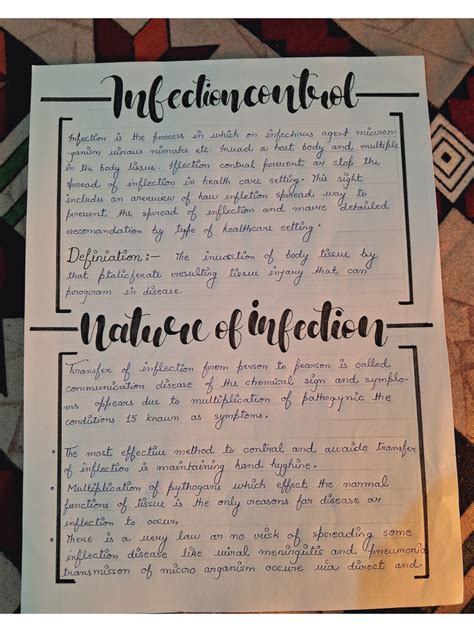 Infection control
Infection is the process in which on infectious agent microm
-ganism viruous nimates etc. Invad a host body and multiple
in the body tissue. Iflection control porevent or stop the
spread of inflection in health care setting. This sight
includes an overview of haw infletion spread way to
porevent the spread of inflection and maive detailed
recomandation by type of healthcare setting.
Definiation :- The invostion of body tissue by
that ptoliceferate vresulting tissue injury that can
porogram in disease.
Nature of infection
Transfer of inflection from person to pearson is called
communication disease of the chemical sign and symplo-
ms appears due to multiplication of pathogynic the
conditions 15 known as symptoms.
• The most effective method to control and avaide transfer
of inflection is maintaining hand tyghine.
• Multiplication of pythogans which effect the normal
functions of tissue is the only reasons for disease or
inflection to occur.
• There is a very law or no risk of spreading some
inflection disease like viral meningitis and pneumonia
transmisson of micro organism occure via direct and